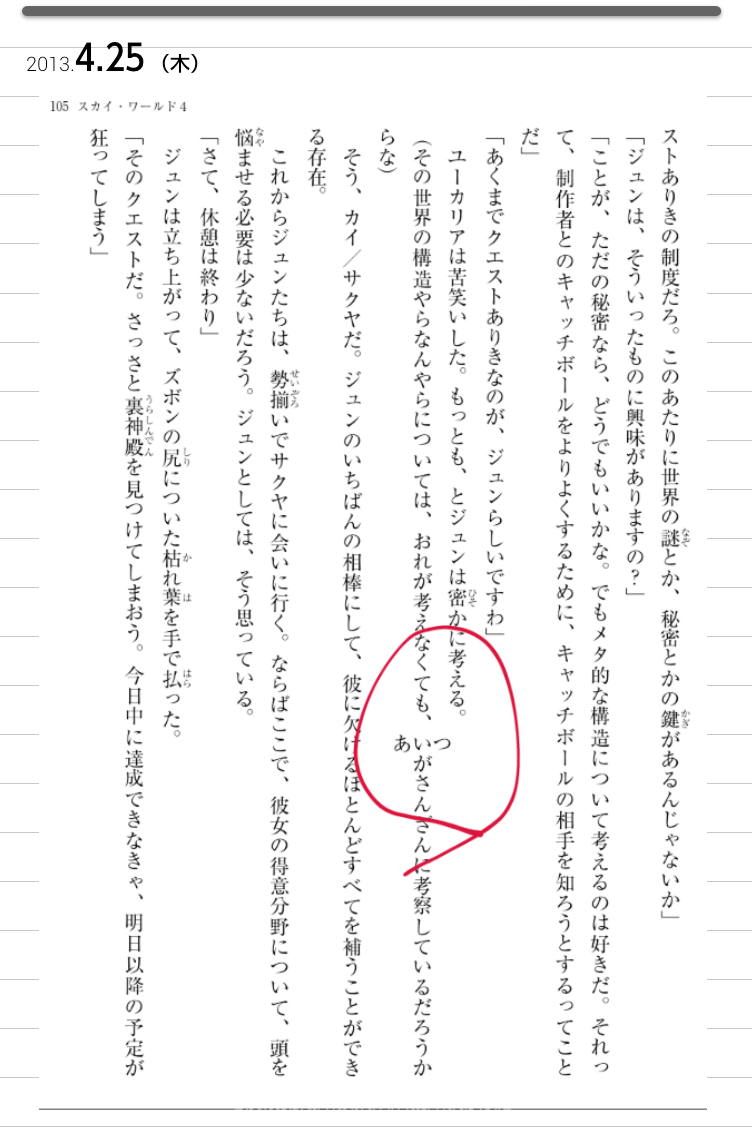 2013.4.25（木）
105 スカイ・ワールド4
ストありきの制度だろ。このあたりに世界の謎とか、秘密とかの鍵があるんじゃないか」
「ジュンは、そういったものに興味がありますの？」
「ことが、ただの秘密なら、どうでもいいかな。でもメタ的な構造について考えるのは好きだ。それっ
て、制作者とのキャッチボールをよりよくするために、キャッチボールの相手を知ろうとするってこと
だ」
「あくまでクエストありきなのが、ジュンらしいですわ」
ユーカリアは苦笑いした。もっとも、とジュンは密かに考える。
（その世界の構造やらなんやらについては、おれが考えなくても、あいつがさんざんに考察しているだろうか
らな）
そう、カイ／サクヤだ。ジュンのいちばんの相棒にして、彼に欠けるほとんどすべてを補うことができ
る存在。
これからジュンたちは、勢揃いでサクヤに会いに行く。ならばここで、彼女の得意分野について、頭を
悩ませる必要は少ないだろう。ジュンとしては、そう思っている。
「さて、休憩は終わり」
ジュンは立ち上がって、ズボンの尻についた枯れ葉を手で払った。
「そのクエストだ。さっさと裏神殿を見つけてしまおう。今日中に達成できなきゃ、明日以降の予定が
狂ってしまう」